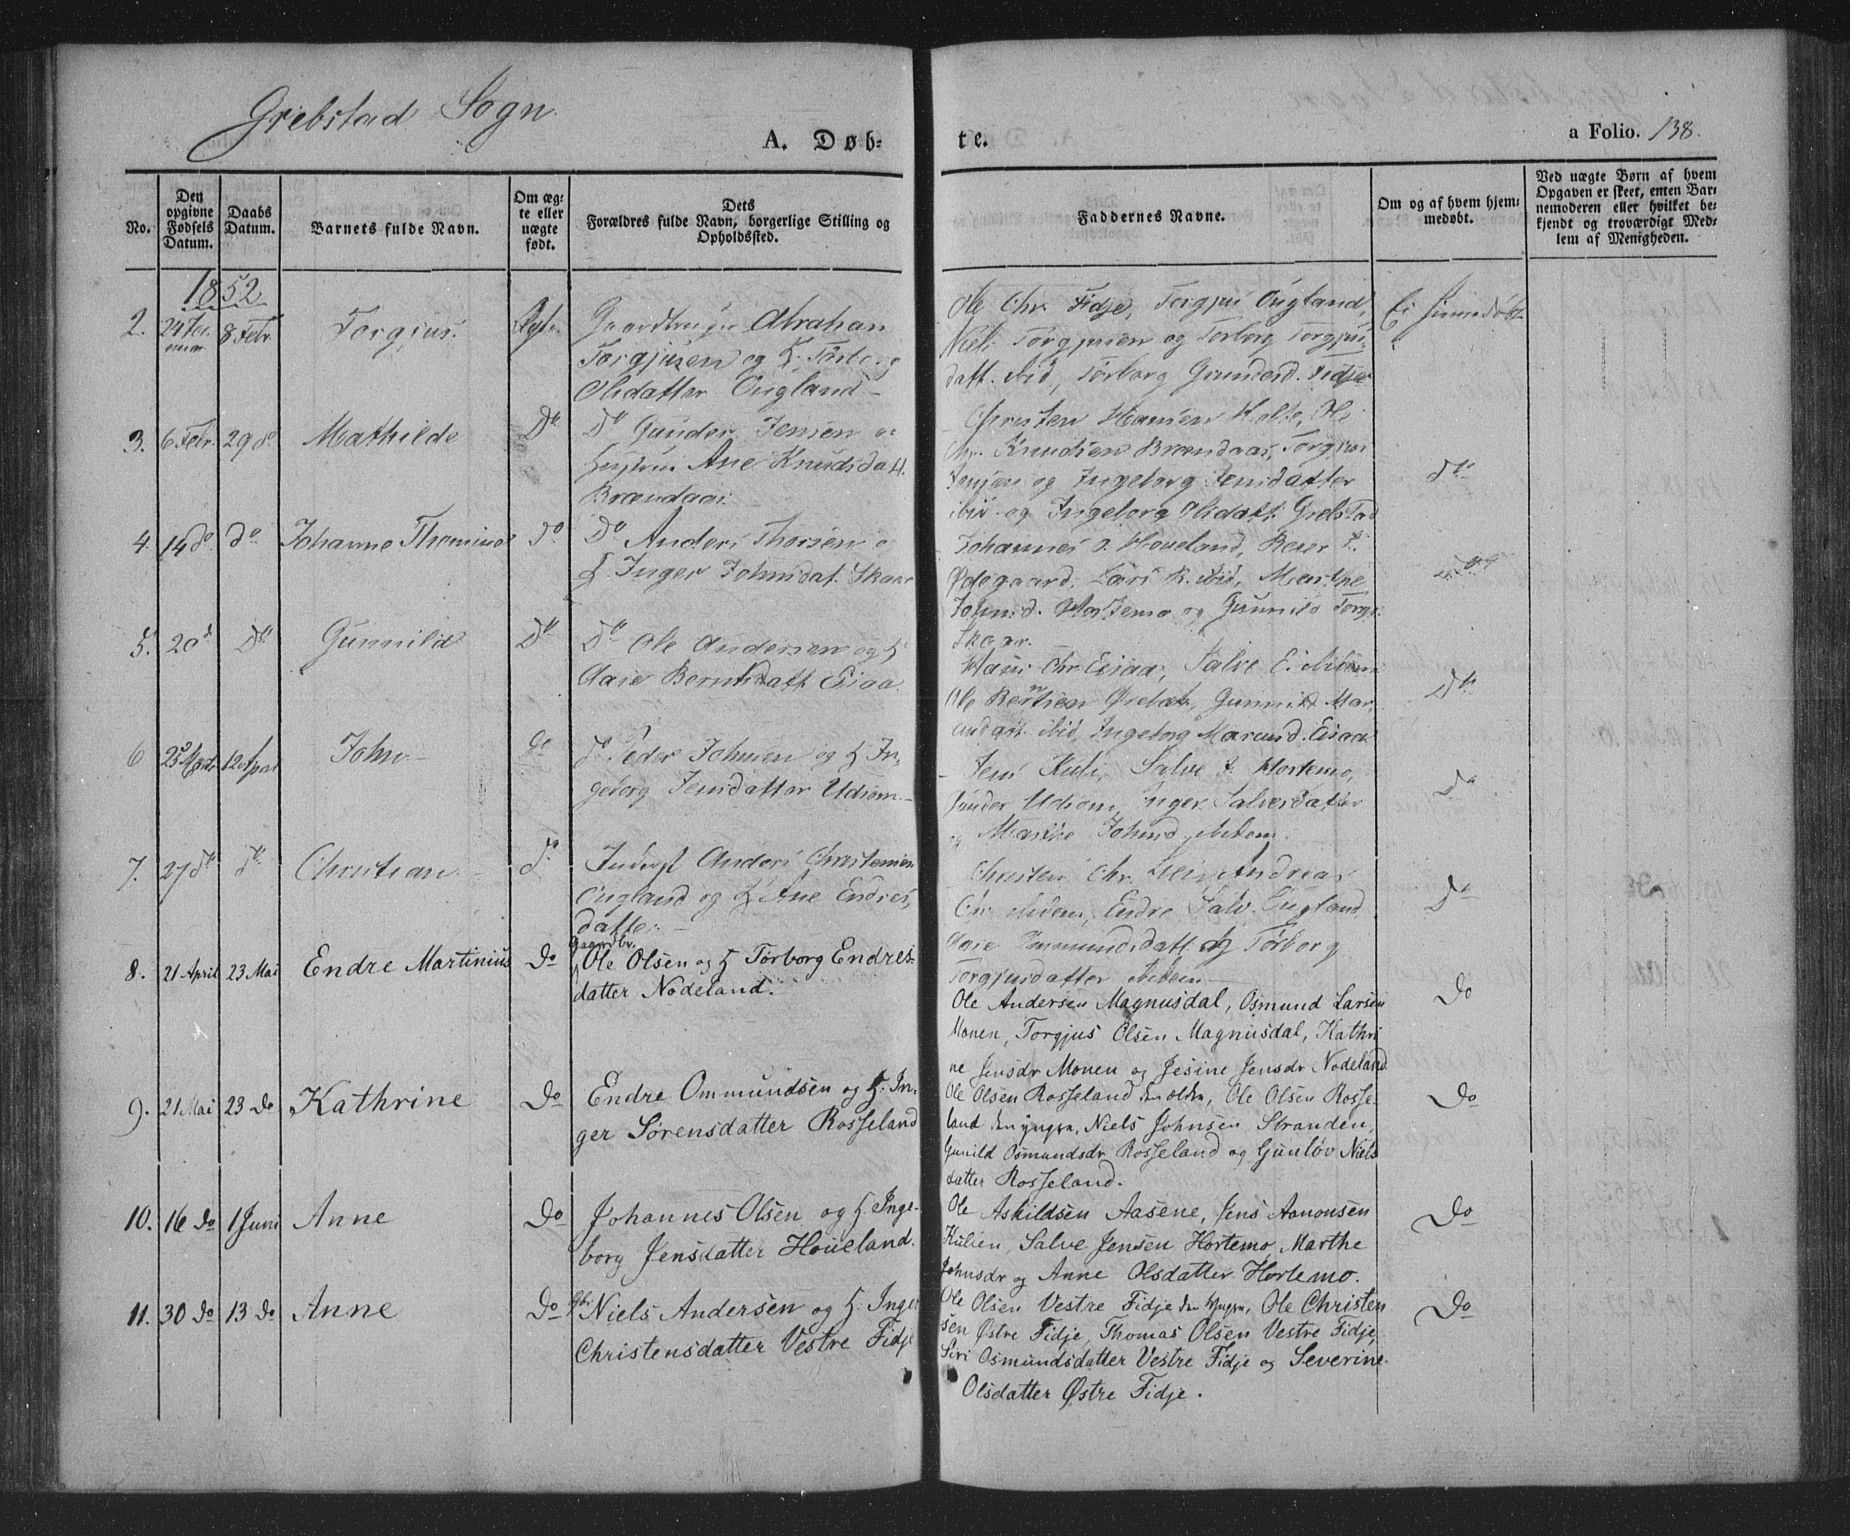 Grebstad Sogn
A. Døb-
te.
a Folio. 138.
No.
Den opgivne Fødsels Datum.
Daabs Datum.
Barnets fulde Navn.
Om ægte eller uægte født.
Dets
Forældres fulde Navn, borgerlige Stilling og
Opholdssted.
Faddernes Navne.
Om og af hvem hjemmedøbt.
Ved uægte Børn af hvem
Opgaven er skeet, enten Bar-
nemoderen eller hvilket be-
kjendt og troværdigt Med-
lem af Menigheden.
1852
2. 8 Febr. Torgjus. Ægte
Gaardbruger Abraham
Torgjusen og H.
Olsdatter Øugland
Ole Chr. Fidje, Torgjus Øugland,
Torgjusen og Torborg Torgjus-
datt. ibid, Torborg Gundersd. Fidje
Ei hjemmedøbt
3. 6 Febr. 29 do Mathilde Do
Do Gunder Jensen og
Hustru Ane Knudsdatt.
Brændaas.
Christen Hansen Holte, Ole
Chr. Knudsen Brændaas, Torgjus
Jensen og Ingeborg Jensdatter
ibid og Ingeborg Olsdatt. Grebstad
Do
4. 14 do do Johanne Thomine Do
Do Anders Thorsen og
H. Inger Johnsdat. Skaar
Johannes O. Houeland, Peder T.
Ødegaard, Lars K. ibid, Marthe
Johnsd. Hortemo og Gunnild Torgs.
Skaar.
5. 20 d Do Gunnild Do
Do Ole Andersen og H
Aase Berntsdatt. Eisaa.
Hans Chr. Eisaa, Salve E. ibidem
Ole Berntsen Ørebæk, Gunnild
ibid, Ingeborg Eisaa
Do
6 25 Marts 12 April John do
Do Peder Johnsen og H In-
geborg Jensdatter Udsom
Jens Kuli, Salve J. Hortemo,
Gunder Udsom, Inger Salvesdatter
og Marthe Johnsd. ibidem.
Do
7. 27 do do Christian do
Inderst Anders Christensen
Øugland og H Ane Endres-
datter
Christen Chr. Andreas
Chr. ibidem, Endre Salv. Øugland
Aase Ommundsdatt. og Torborg
Torgjusdatter ibidem
Do
8. 21 April 23 Mai Endre Martinius Do
Gaardbr.
Ole Olsen og H Törborg Endres-
datter Nodeland.
Ole Andersen Magnusdal, Osmund Larsen
Monen, Torgjus Olsen Magnusdal, Kathri
ne Jensdr Monen og Jesine Jensdr Nodeland
Do
9. 21 Mai 23 do Kathrine Do
Endre Ommundsen og H. In-
ger Sörensdatter Rosseland
Ole Olsen Rosseland den ældre, Ole Olsen Rosse-
land den yngre, Niels Johnsen Stranden,
Gunild Osmundsdr Rosseland og Gunlöv Niels
datter Rosseland.
Do
10. 16 do 1 Juni Anne Do
Johannes Olsen og H Inge-
borg Jensdatter Houeland.
Ole Askildsen Aasene, Jens Aanonsen
Kulien, Salve Jensen Hortemo, Marthe
Johnsdr og Anne Olsdatter Hortemo.
Do
11. 30 do 13 do Anne Do
Gbr. Niels Andersen og H. Inger
Christensdatter Vestre Fidje
Ole Olsen Vestre Fidje den yngre, Ole Christen
sen Østre Fidje, Thomas Olsen Vestre Fidje,
Siri Osmundsdatter Vestre Fidje og Severine
Olsdatter Østre Fidje.
Do